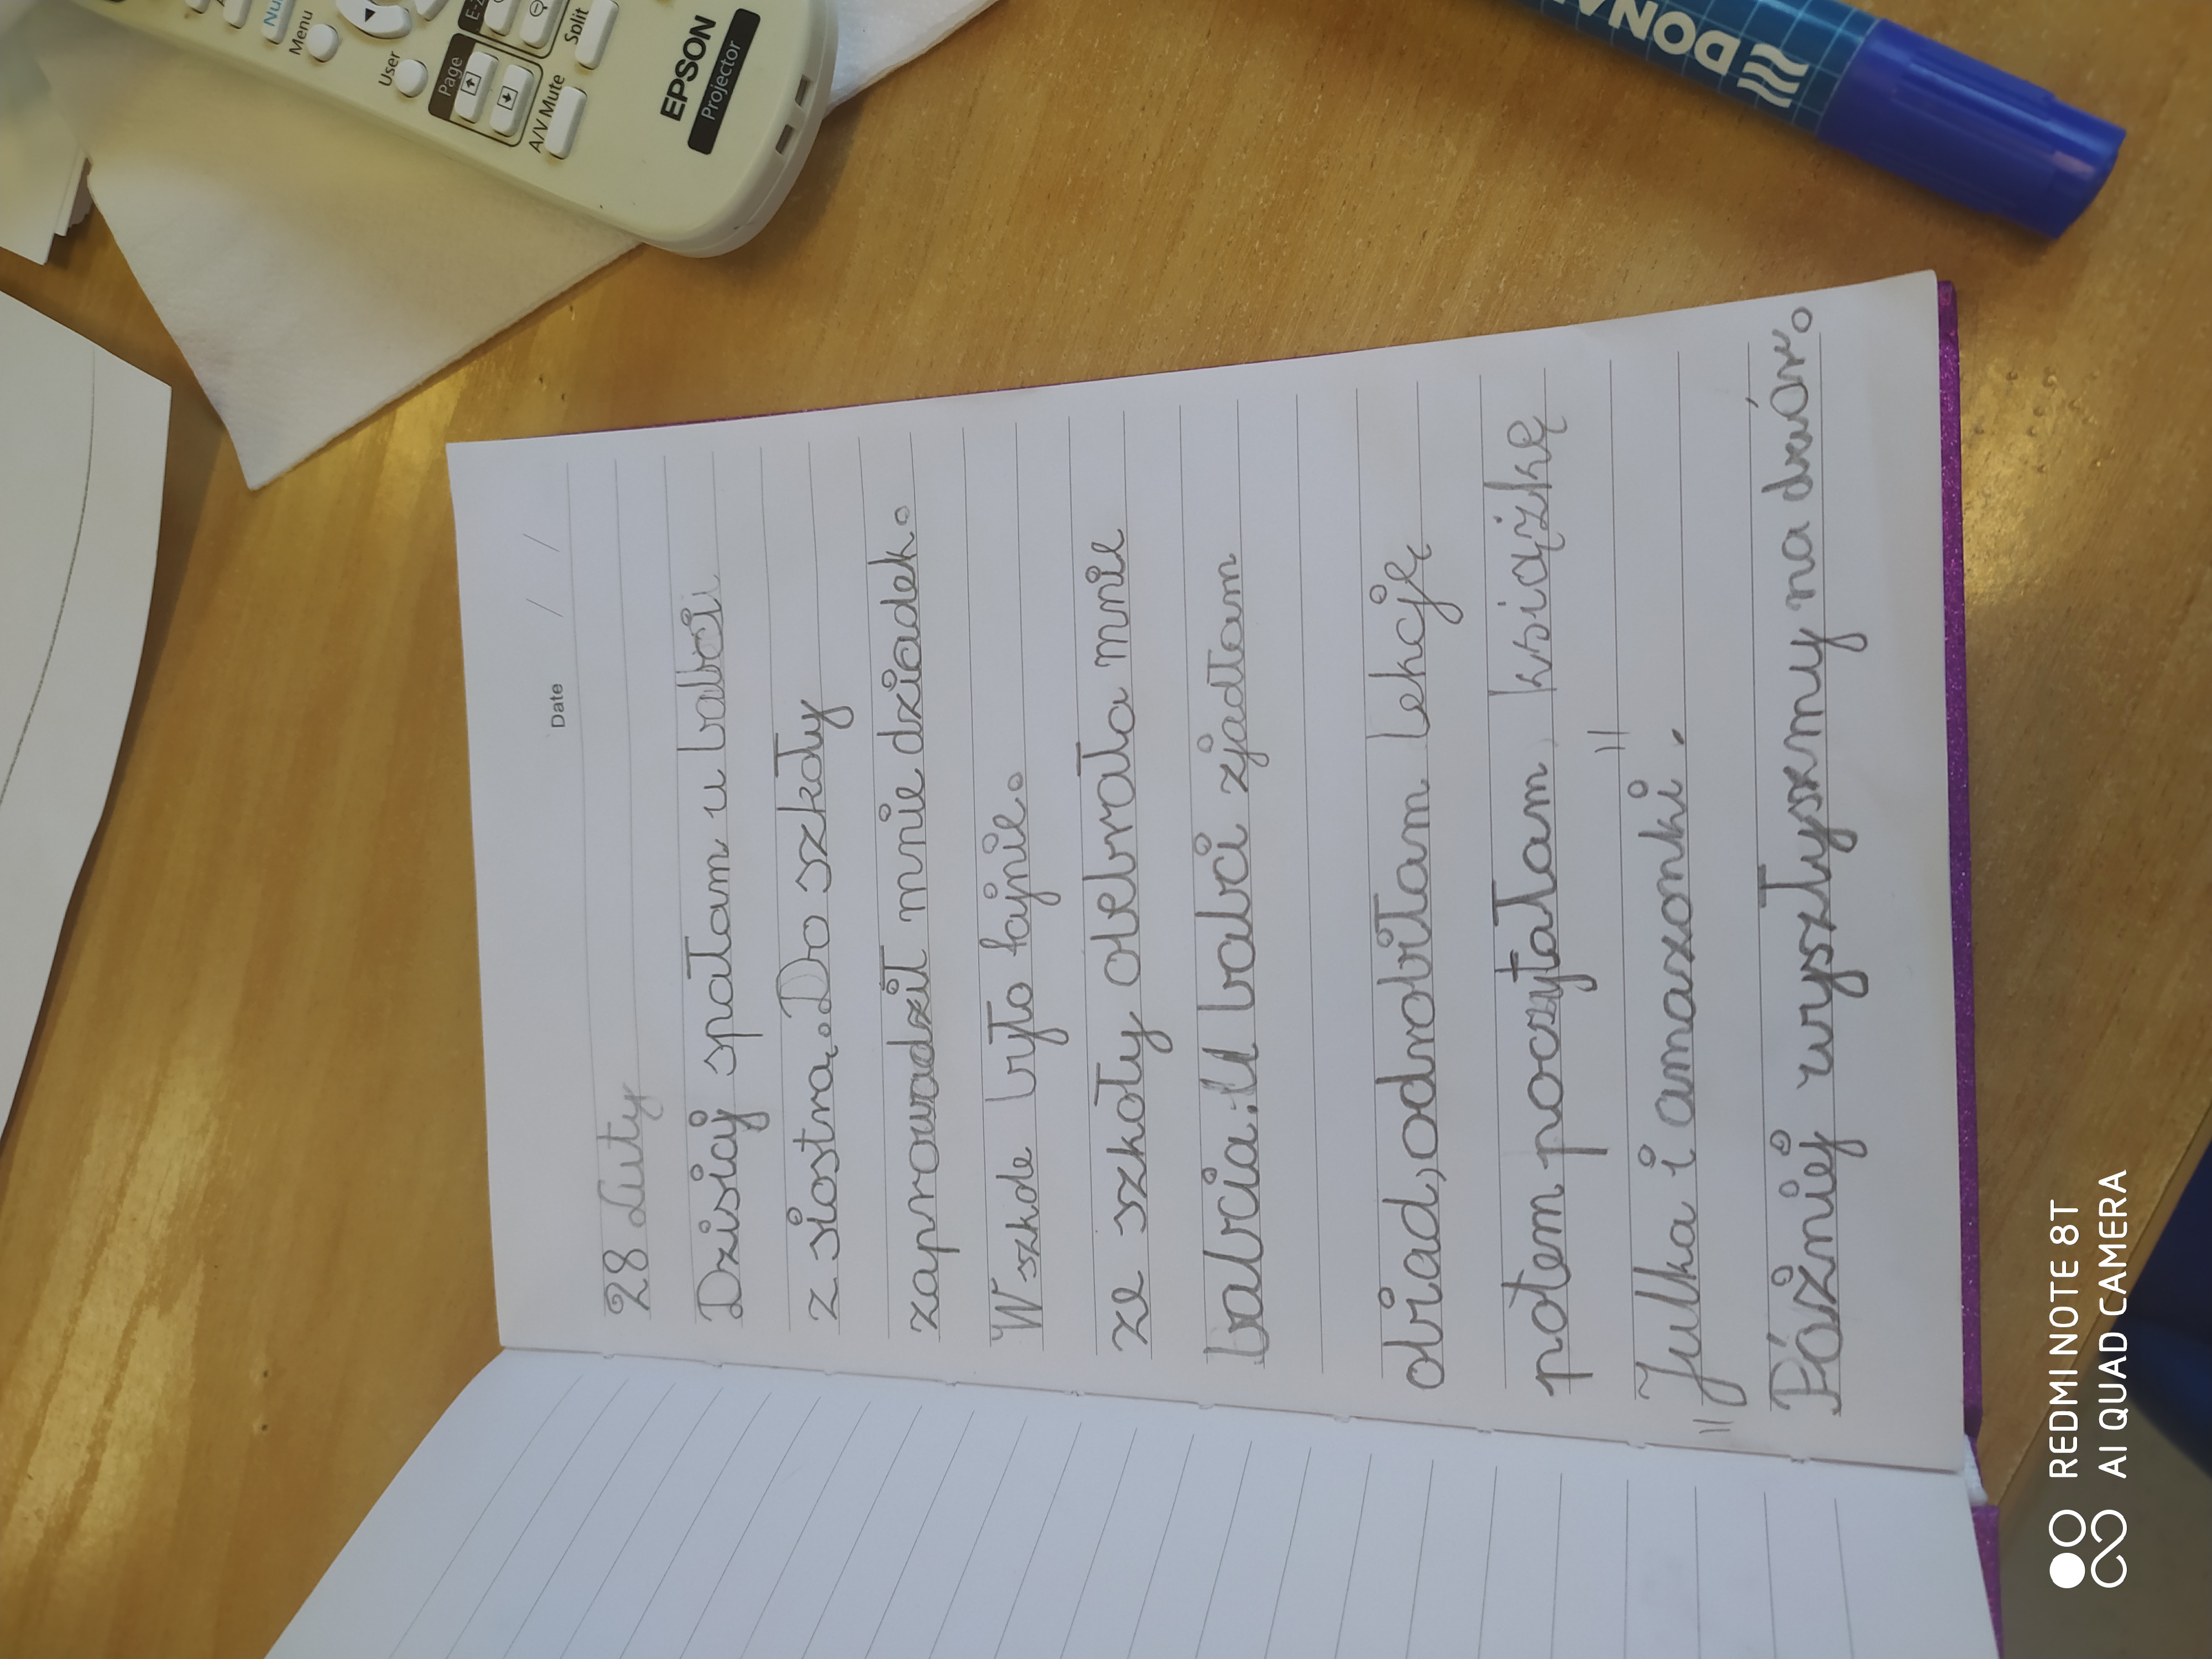 Nu
Menu
User
Page
E-Z
Split
A/V Mute
EPSON
Projector
DONA
Date / /
28 Luty
Dzisiaj spałam u babci
z siostrą. Do szkoły
zaprowadził mnie dziadek.
W szkole było fajnie.
ze szkoły odebrała mnie
babcia. U babci zjadłam
obiad, odrobiłam lekcję
potem poczytałam książkę
"Julka i amazonki".
Póżniej wyszłyszmy na dwór.
REDMI NOTE 8T
AI QUAD CAMERA